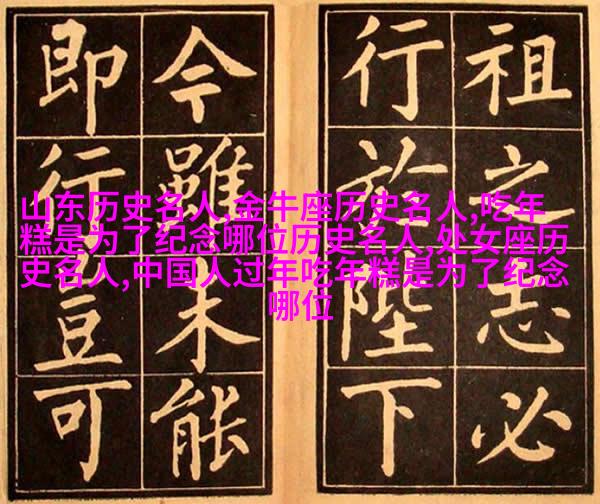 祖之志必
行於陛下
今雖未能
即行豈可
山东历史名人,金牛座历史名人,吃年
糕是为了纪念哪位历史名人,处女座历
史名人,中国人过年吃年糕是为了纪念
哪位